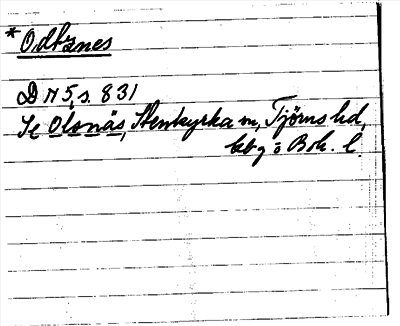 *Odhznes
D N 5, s. 831
Se Olsnäs, Stenkyrka sn, Tjörns hd,
Gbg o Boh. l.